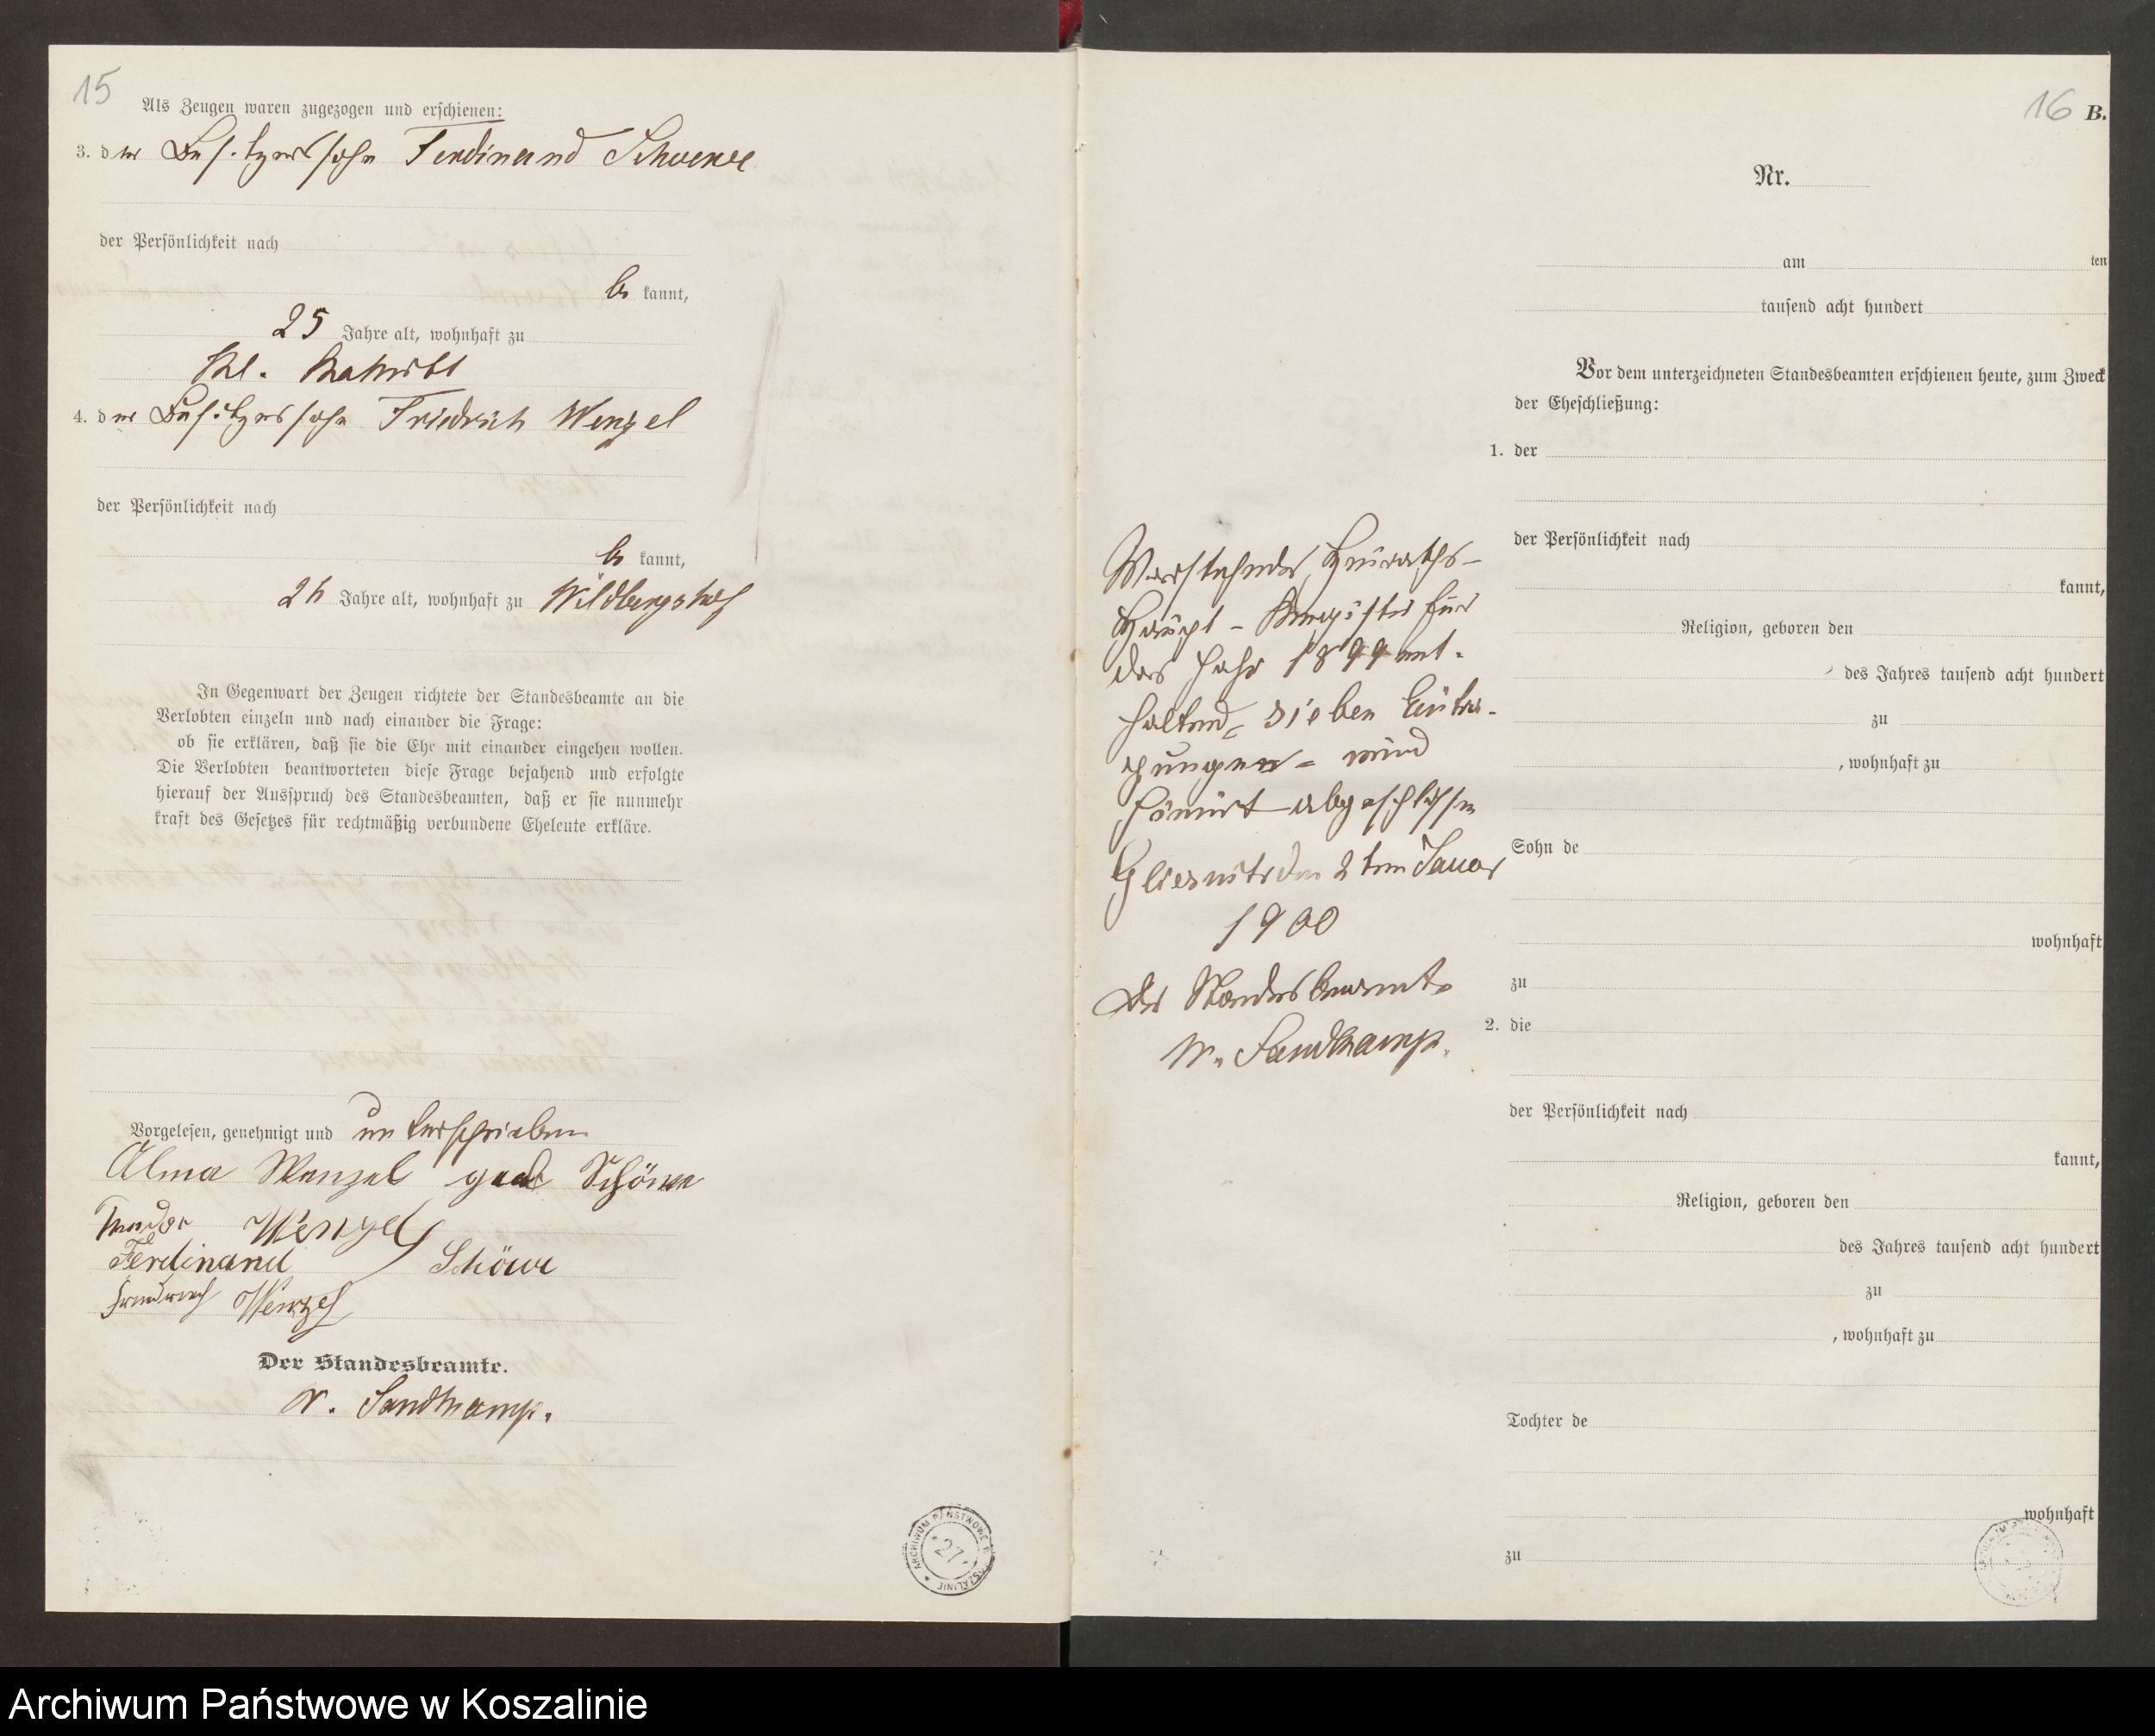 15
Als Zeugen waren zugezogen und erschienen:
3. der Besitzerssohn Ferdinand Schoewe
der Persönlichkeit nach
be kannt,
25 Jahre alt, wohnhaft zu
Kl.
4. der Besitzerssohn Friedrich Wenzel
der Persönlichkeit nach
be kannt,
Jahre alt, wohnhaft zu Wildbergshof
In Gegenwart der Zeugen richtete der Standesbeamte an die
Verlobten einzeln und nach einander die Frage:
ob sie erklären, daß sie die Ehe mit einander eingehen wollen.
Die Verlobten beantworteten diese Frage bejahend und erfolgte
hierauf der Ausspruch des Standesbeamten, daß er sie nunmehr
kraft des Gesetzes für rechtmäßig verbundene Eheleute erkläre.
Vorgelesen, genehmigt und unterschrieben
Alma Wenzel geb Schöwe
Wenzel
Ferdinand Schöwe
Friedrich Wenzel
Der Standesbeamte.
W. Sandkamp.
ARCHIWUM PAŃSTWOWE W KOSZALINIE
27
16 B.
Nr.
am ten
tausend acht hundert
Vor dem unterzeichneten Standesbeamten erschienen heute, zum Zweck
der Eheschließung:
1. der
der Persönlichkeit nach
kannt,
Religion, geboren den
des Jahres tausend acht hundert
zu
, wohnhaft zu
Sohn de
wohnhaft
zu
2. die
der Persönlichkeit nach
kannt,
Religion, geboren den
des Jahres tausend acht hundert
zu
, wohnhaft zu
Tochter de
wohnhaft
zu
Vorstehendes Heiraths-
Haupt-Register für
das Jahr 1899 ent-
haltend = sieben Eintra-
gungen = wird
hiermit abgeschlossen
Gliesnitz den 2ten Januar
1900
Der Standesbeamte
W. Sandkamp.
Archiwum Państwowe w Koszalinie